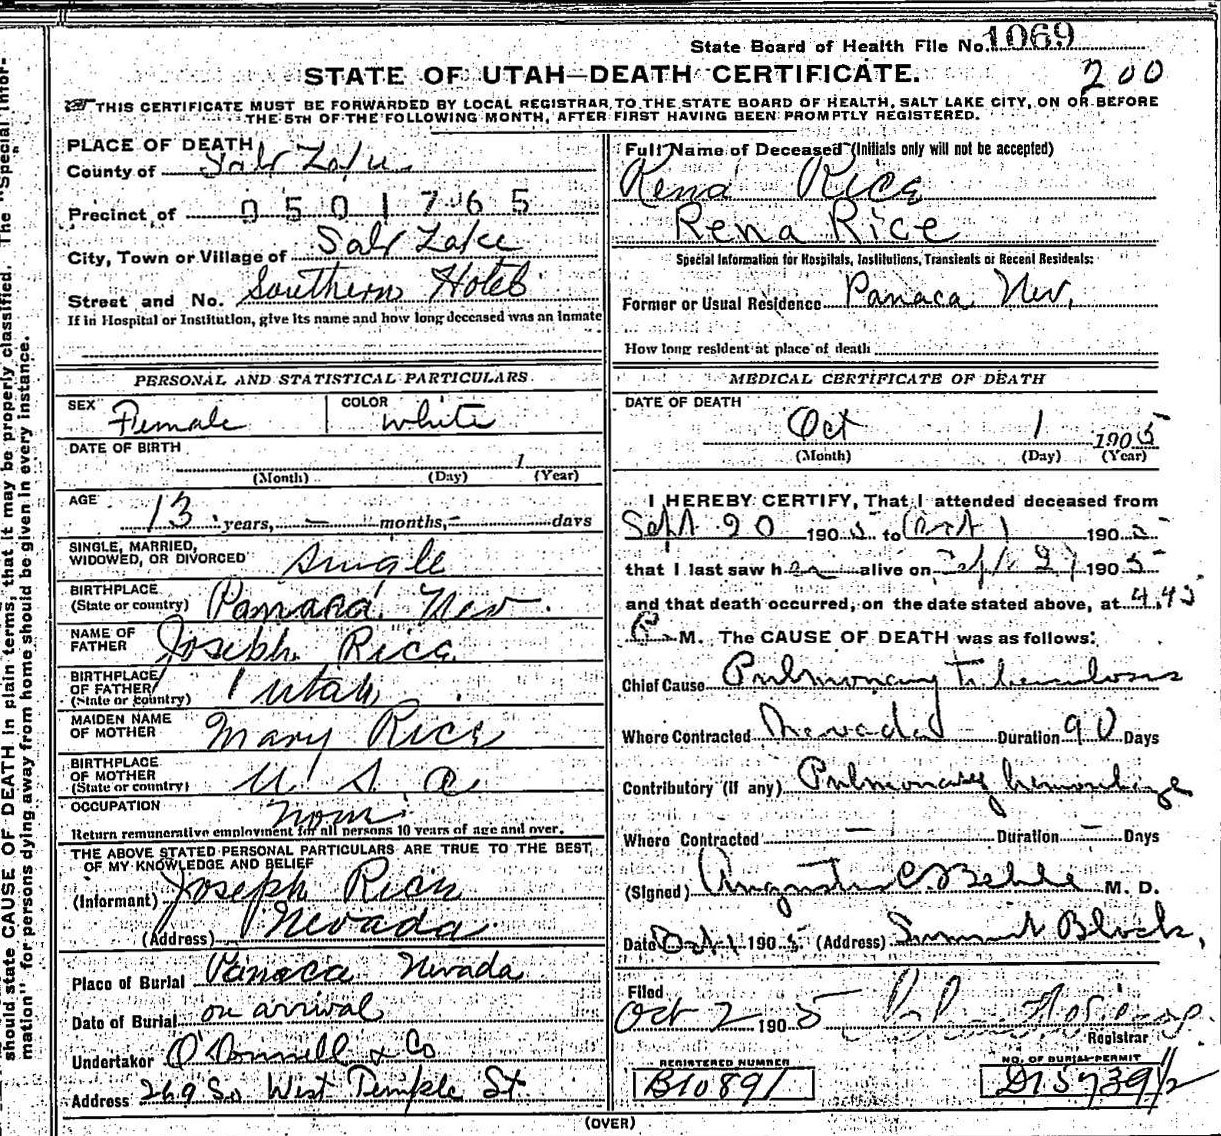 State Board of Health File No. 1069
STATE OF UTAH—DEATH CERTIFICATE.
200
THIS CERTIFICATE MUST BE FORWARDED BY LOCAL REGISTRAR TO THE STATE BOARD OF HEALTH, SALT LAKE CITY, ON OR BEFORE
THE 5TH OF THE FOLLOWING MONTH, AFTER FIRST HAVING BEEN PROMPTLY REGISTERED.
PLACE OF DEATH
County of Salt Lake
Precinct of 0501765
City, Town or Village of Salt Lake
Street and No. Southern Hotel
If in Hospital or Institution, give its name and how long deceased was an inmate
PERSONAL AND STATISTICAL PARTICULARS.
SEX Female COLOR White
DATE OF BIRTH
1
(Month) (Day) (Year)
AGE 13 years, — months, — days
SINGLE, MARRIED,
WIDOWED, OR DIVORCED Single
BIRTHPLACE
(State or country) Panaca Nev.
NAME OF
FATHER Joseph Rice
BIRTHPLACE
OF FATHER
(State or country) Utah
MAIDEN NAME
OF MOTHER Mary Rice
BIRTHPLACE
OF MOTHER
(State or country) U. S. a.
OCCUPATION
Return remunerative employment for all persons 10 years of age and over.
THE ABOVE STATED PERSONAL PARTICULARS ARE TRUE TO THE BEST
OF MY KNOWLEDGE AND BELIEF
(Informant) Joseph Rice
(Address) Nevada
Place of Burial Panaca Nevada
Date of Burial on arrival
Undertaker O'Donnell & Co
Address 269 So West Temple St.
Full Name of Deceased (Initials only will not be accepted)
Rena Rice
Rena Rice
Special Information for Hospitals, Institutions, Transients or Recent Residents:
Former or Usual Residence Panaca Nev.
How long resident at place of death
MEDICAL CERTIFICATE OF DEATH
DATE OF DEATH
Oct 1 1905
(Month) (Day) (Year)
I HEREBY CERTIFY, That I attended deceased from
Sept 20 1905 to Oct 1 1905
that I last saw her alive on Sept 27 1905
and that death occurred, on the date stated above, at 4.45
P M. The CAUSE OF DEATH was as follows:
Chief Cause Pulmonary Tuberculosis
Where Contracted Nevada Duration 90 Days
Contributory (if any) Pulmonary hemorrhage
Where Contracted — Duration — Days
(Signed) Augustus C. Behle M. D.
Date Oct 1 1905 (Address) Summit Block,
Filed
Oct 2 1905
Registrar
REGISTERED NUMBER
B10891
NO. OF BURIAL PERMIT
D15739½
(OVER)
should state CAUSE OF DEATH in plain terms, that it may be properly classified. The "Special Infor-
mation" for persons dying away from home should be given in every instance.